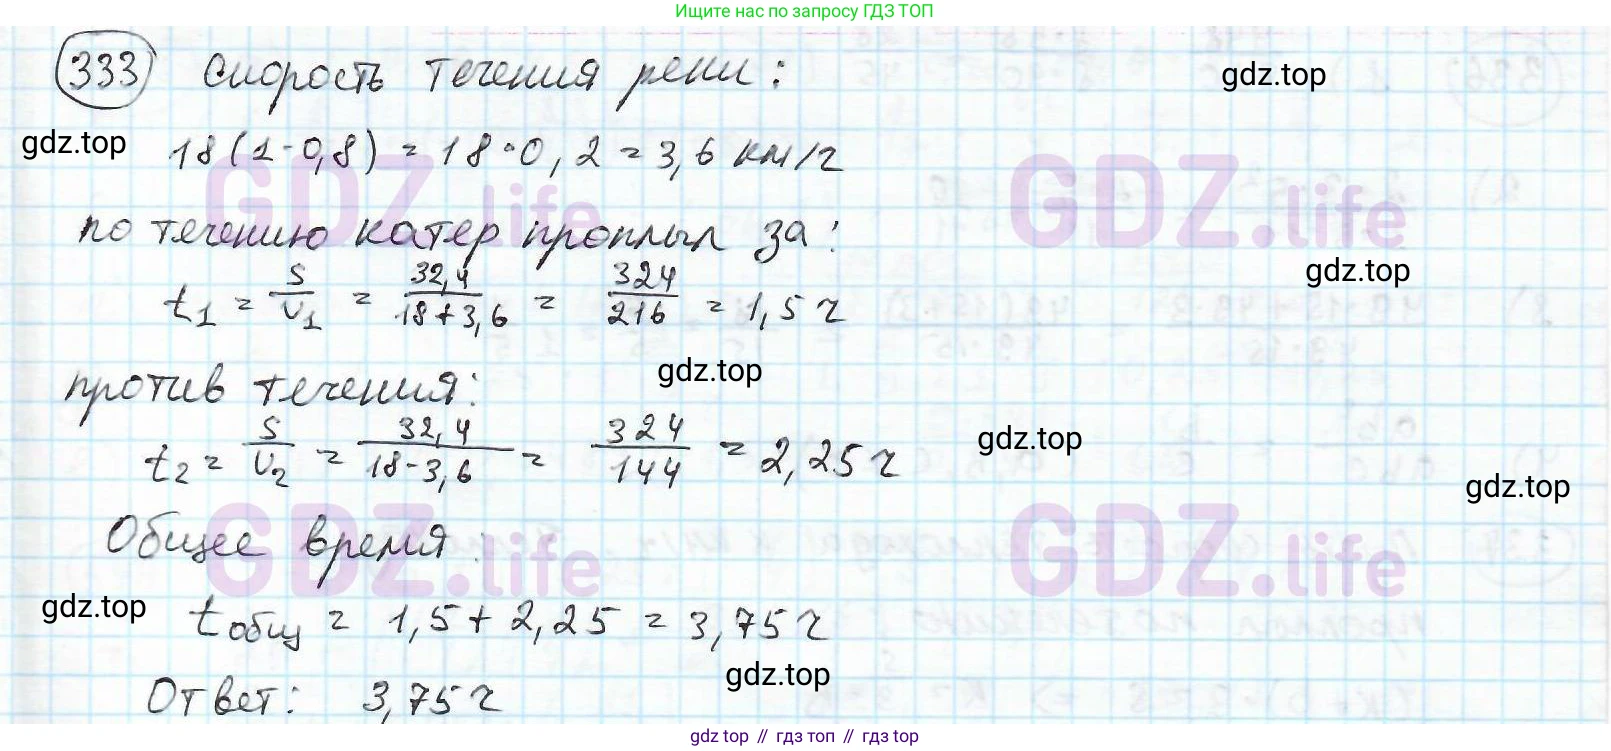 Ищите нас по запросу ГДЗ ТОП
333 Скорость течения реки:
gdz.top
gdz.top
18(1-0,8) = 18·0,2 = 3,6 км/ч
GDZ.life GDZ.life
по течению катер проплыл за:
gdz.top
t1 = S/v1 = 32,4/18+3,6 = 324/216 = 1,5 ч
gdz.top
против течения:
gdz.top
t2 = S/v2 = 32,4/18-3,6 = 324/144 = 2,25 ч
gdz.top
GDZ.life GDZ.life
Общее время:
gdz.top
tобщ = 1,5 + 2,25 = 3,75 ч
gdz.top
Ответ: 3,75 ч
gdz top // гдз топ // гдз top